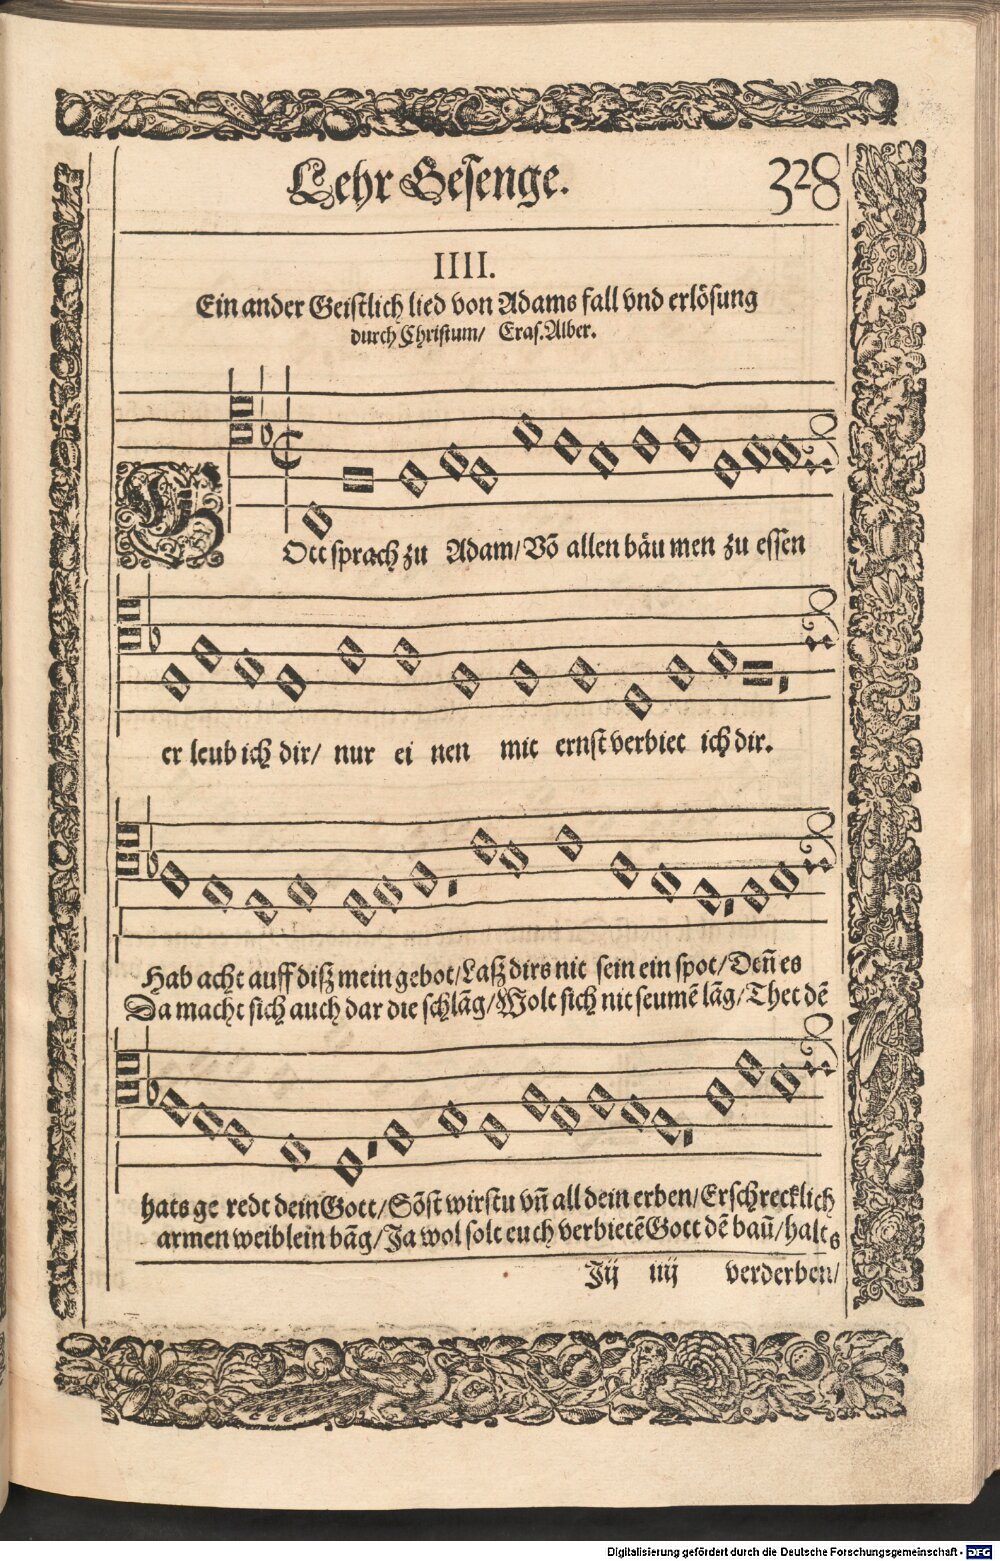 Lehr Gesenge. 328
IIII.
Ein ander Geistlich lied von Adams fall vnd erlösung
durch Christum/ Eras. Alber.
GOtt sprach zu Adam/ Võ allen bäu men zu essen
er leub ich dir/ nur ei nen mit ernst verbiet ich dir.
Hab acht auff diß mein gebot/ Laß dirs nit sein ein spot/ Deñ es
Da macht sich auch dar die schlãg/ Wolt sich nit seumẽ lãg/ Thet dẽ
hats ge redt dein Gott/ Sõst wirstu vñ all dein erben/ Erschrecklich
armen weiblein bãg/ Ja wol solt euch verbietẽ Gott dẽ baũ/ halts
Jij iiij verderben/
Digitalisierung gefördert durch die Deutsche Forschungsgemeinschaft - DFG